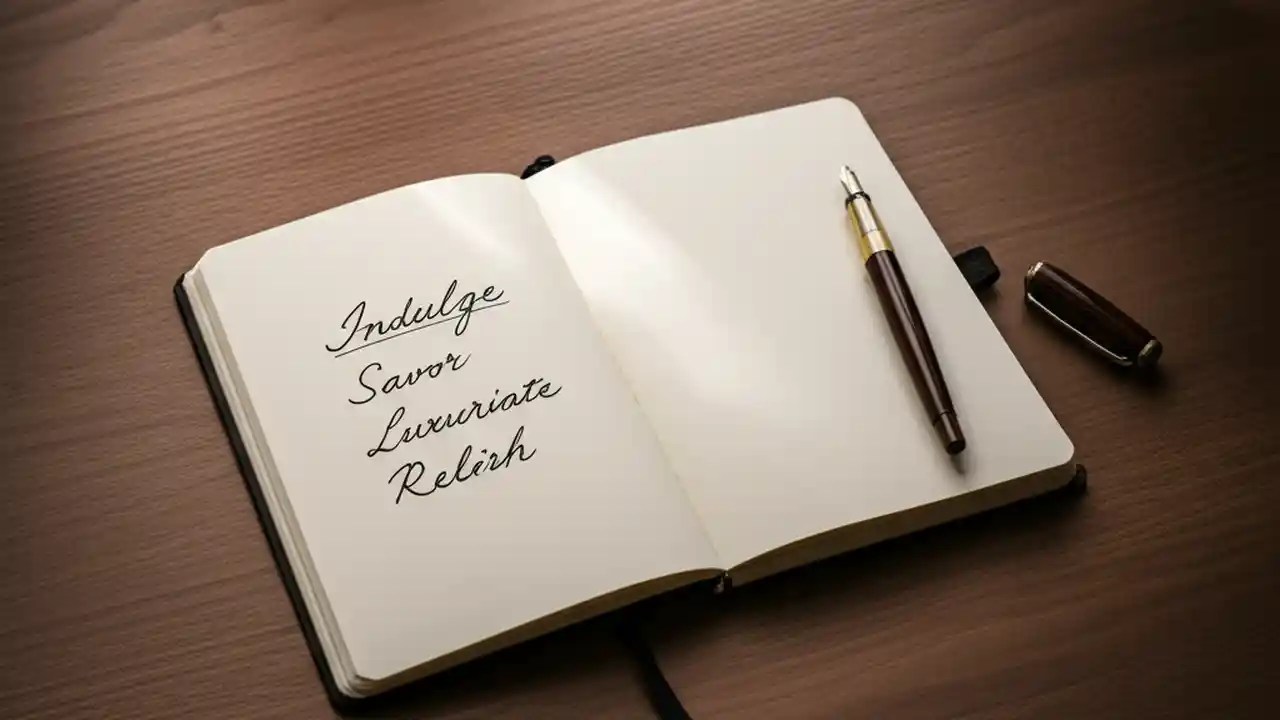 Indulge
Savor
Luxuriate
Relish